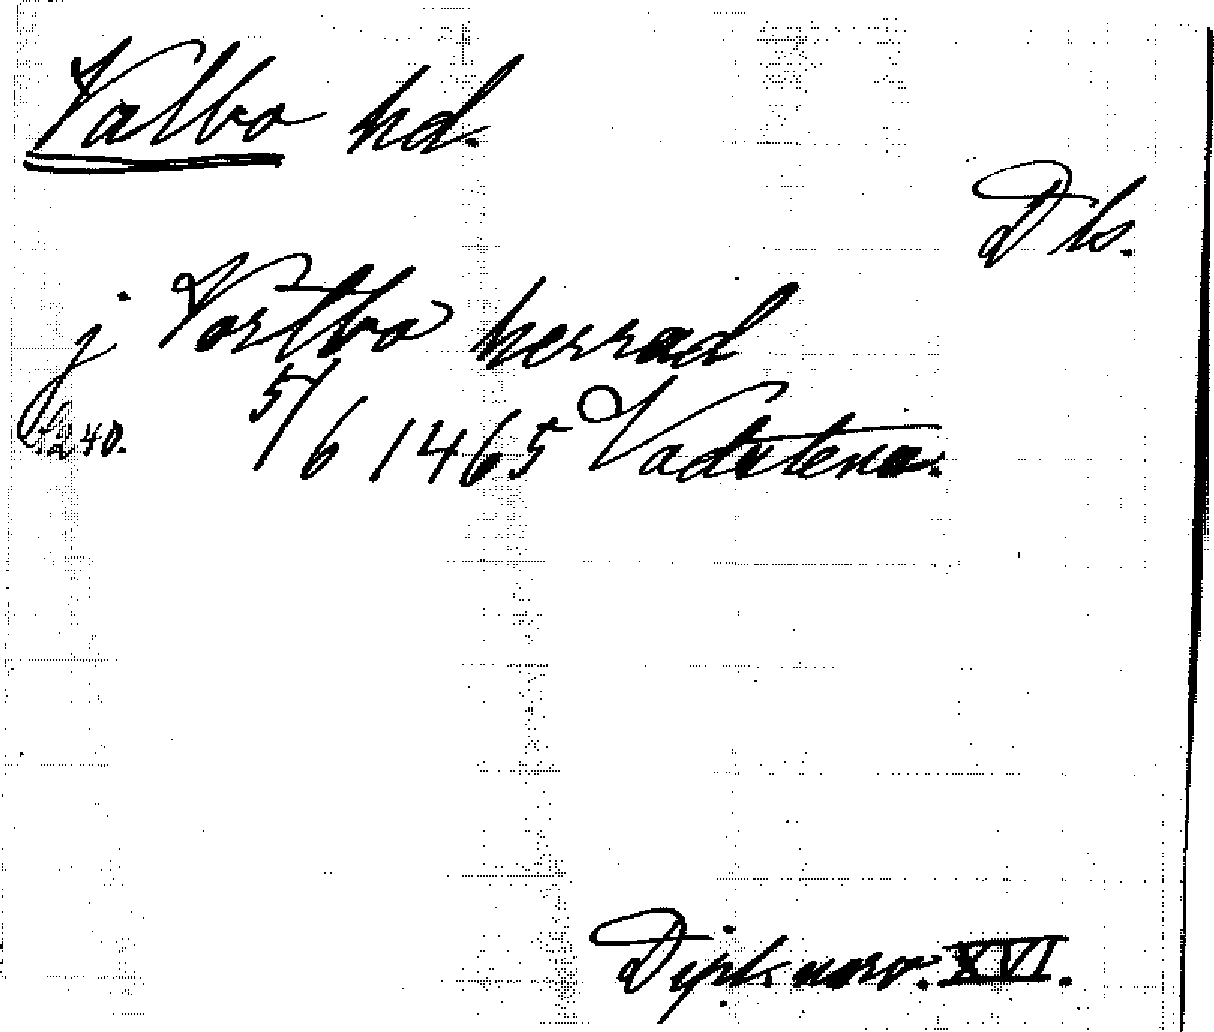 Valbo hd.
Dls.
j Vartbo herrad
5/6 1465 Vadstena.
240.
Dipl. norv. XVI.